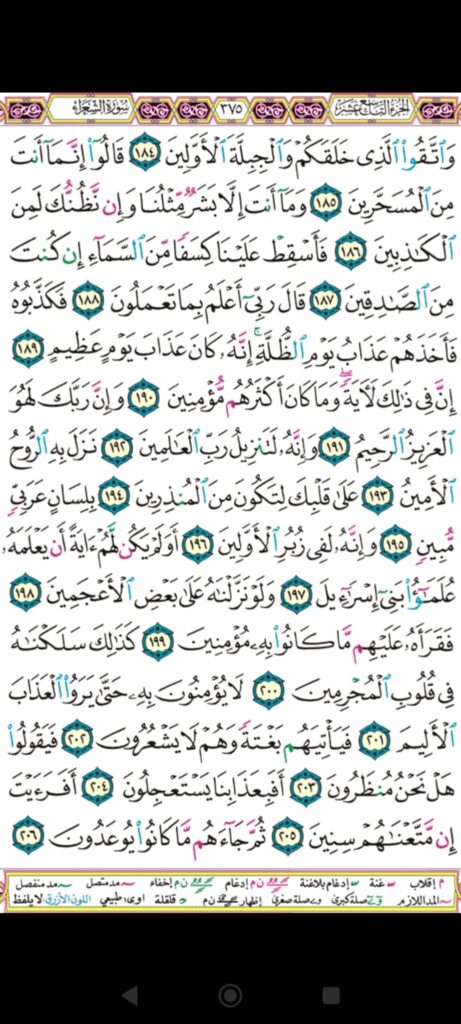 الجزء التاسع عشر ٣٧٥ سورة الشعراء
وَاتَّقُوا الَّذِي خَلَقَكُمْ وَالْجِبِلَّةَ الْأَوَّلِينَ ١٨٤ قَالُوا إِنَّمَا أَنتَ
مِنَ الْمُسَحَّرِينَ ١٨٥ وَمَا أَنتَ إِلَّا بَشَرٌ مِّثْلُنَا وَإِن نَّظُنُّكَ لَمِنَ
الْكَاذِبِينَ ١٨٦ فَأَسْقِطْ عَلَيْنَا كِسَفًا مِّنَ السَّمَاءِ إِن كُنتَ
مِنَ الصَّادِقِينَ ١٨٧ قَالَ رَبِّي أَعْلَمُ بِمَا تَعْمَلُونَ ١٨٨ فَكَذَّبُوهُ
فَأَخَذَهُمْ عَذَابُ يَوْمِ الظُّلَّةِ ۚ إِنَّهُ كَانَ عَذَابَ يَوْمٍ عَظِيمٍ ١٨٩
إِنَّ فِي ذَٰلِكَ لَآيَةً ۖ وَمَا كَانَ أَكْثَرُهُم مُّؤْمِنِينَ ١٩٠ وَإِنَّ رَبَّكَ لَهُوَ
الْعَزِيزُ الرَّحِيمُ ١٩١ وَإِنَّهُ لَتَنزِيلُ رَبِّ الْعَالَمِينَ ١٩٢ نَزَلَ بِهِ الرُّوحُ
الْأَمِينُ ١٩٣ عَلَىٰ قَلْبِكَ لِتَكُونَ مِنَ الْمُنذِرِينَ ١٩٤ بِلِسَانٍ عَرَبِيٍّ
مُّبِينٍ ١٩٥ وَإِنَّهُ لَفِي زُبُرِ الْأَوَّلِينَ ١٩٦ أَوَلَمْ يَكُن لَّهُمْ ءَايَةً أَن يَعْلَمَهُ
عُلَمَٰٓؤُا۟ بَنِي إِسْرَٰٓءِيلَ ١٩٧ وَلَوْ نَزَّلْنَاهُ عَلَىٰ بَعْضِ الْأَعْجَمِينَ ١٩٨
فَقَرَأَهُ عَلَيْهِم مَّا كَانُوا بِهِ مُؤْمِنِينَ ١٩٩ كَذَٰلِكَ سَلَكْنَاهُ
فِي قُلُوبِ الْمُجْرِمِينَ ٢٠٠ لَا يُؤْمِنُونَ بِهِ حَتَّىٰ يَرَوُا الْعَذَابَ
الْأَلِيمَ ٢٠١ فَيَأْتِيَهُم بَغْتَةً وَهُمْ لَا يَشْعُرُونَ ٢٠٢ فَيَقُولُوا
هَلْ نَحْنُ مُنظَرُونَ ٢٠٣ أَفَبِعَذَابِنَا يَسْتَعْجِلُونَ ٢٠٤ أَفَرَءَيْتَ
إِن مَّتَّعْنَاهُمْ سِنِينَ ٢٠٥ ثُمَّ جَاءَهُم مَّا كَانُوا يُوعَدُونَ ٢٠٦
م إقلاب غنة إدغام بلاغنة ن م إدغام ن م إخفاء مد متصل مد منفصل
المد اللازم صلة كبرى صلة صغرى إظهار ن م قلقلة طبيعي اللون الأزرق: لا يلفظ